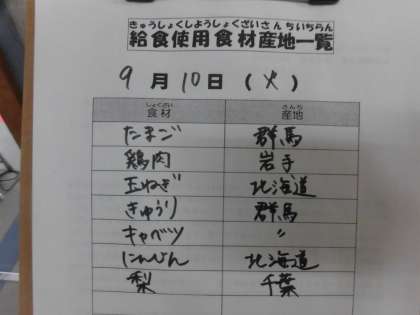 きゅうしょくしようしょくざいさんちいちらん
給食使用食材産地一覧
9月10日(火)
しょくざい さんち
食材 産地
たまご 群馬
鶏肉 岩手
玉ねぎ 北海道
きゅうり 群馬
キャベツ 〃
にんじん 北海道
梨 千葉